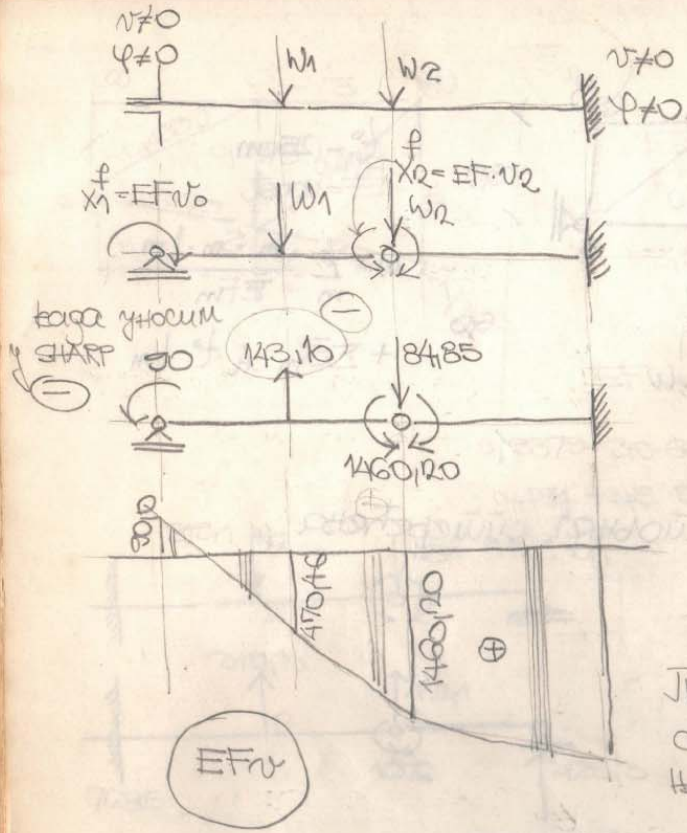 v≠0
φ≠0
W1
W2
v≠0
φ≠0
X1ᶠ = EFv₀
W1
X2ᶠ = EF·v2
W2
када уносим
у SHARP
⊖
90
143,10
⊖
84,85
1460,20
90,0
470,46
1460,20
⊕
EFv